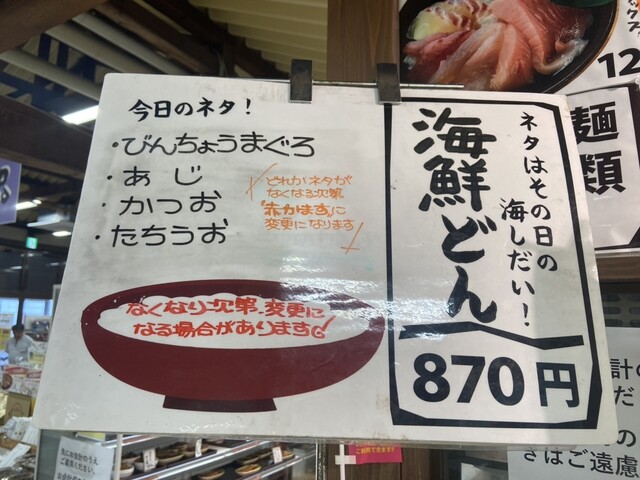 今日のネタ！
・びんちょうまぐろ
・あじ
・かつお
・たちうお
どれかネタが
なくなる次第
"赤かます"に
変更になります
なくなり次第、変更に
なる場合があります
ネタはその日の
海しだい！
海鮮どん
870円
麺類